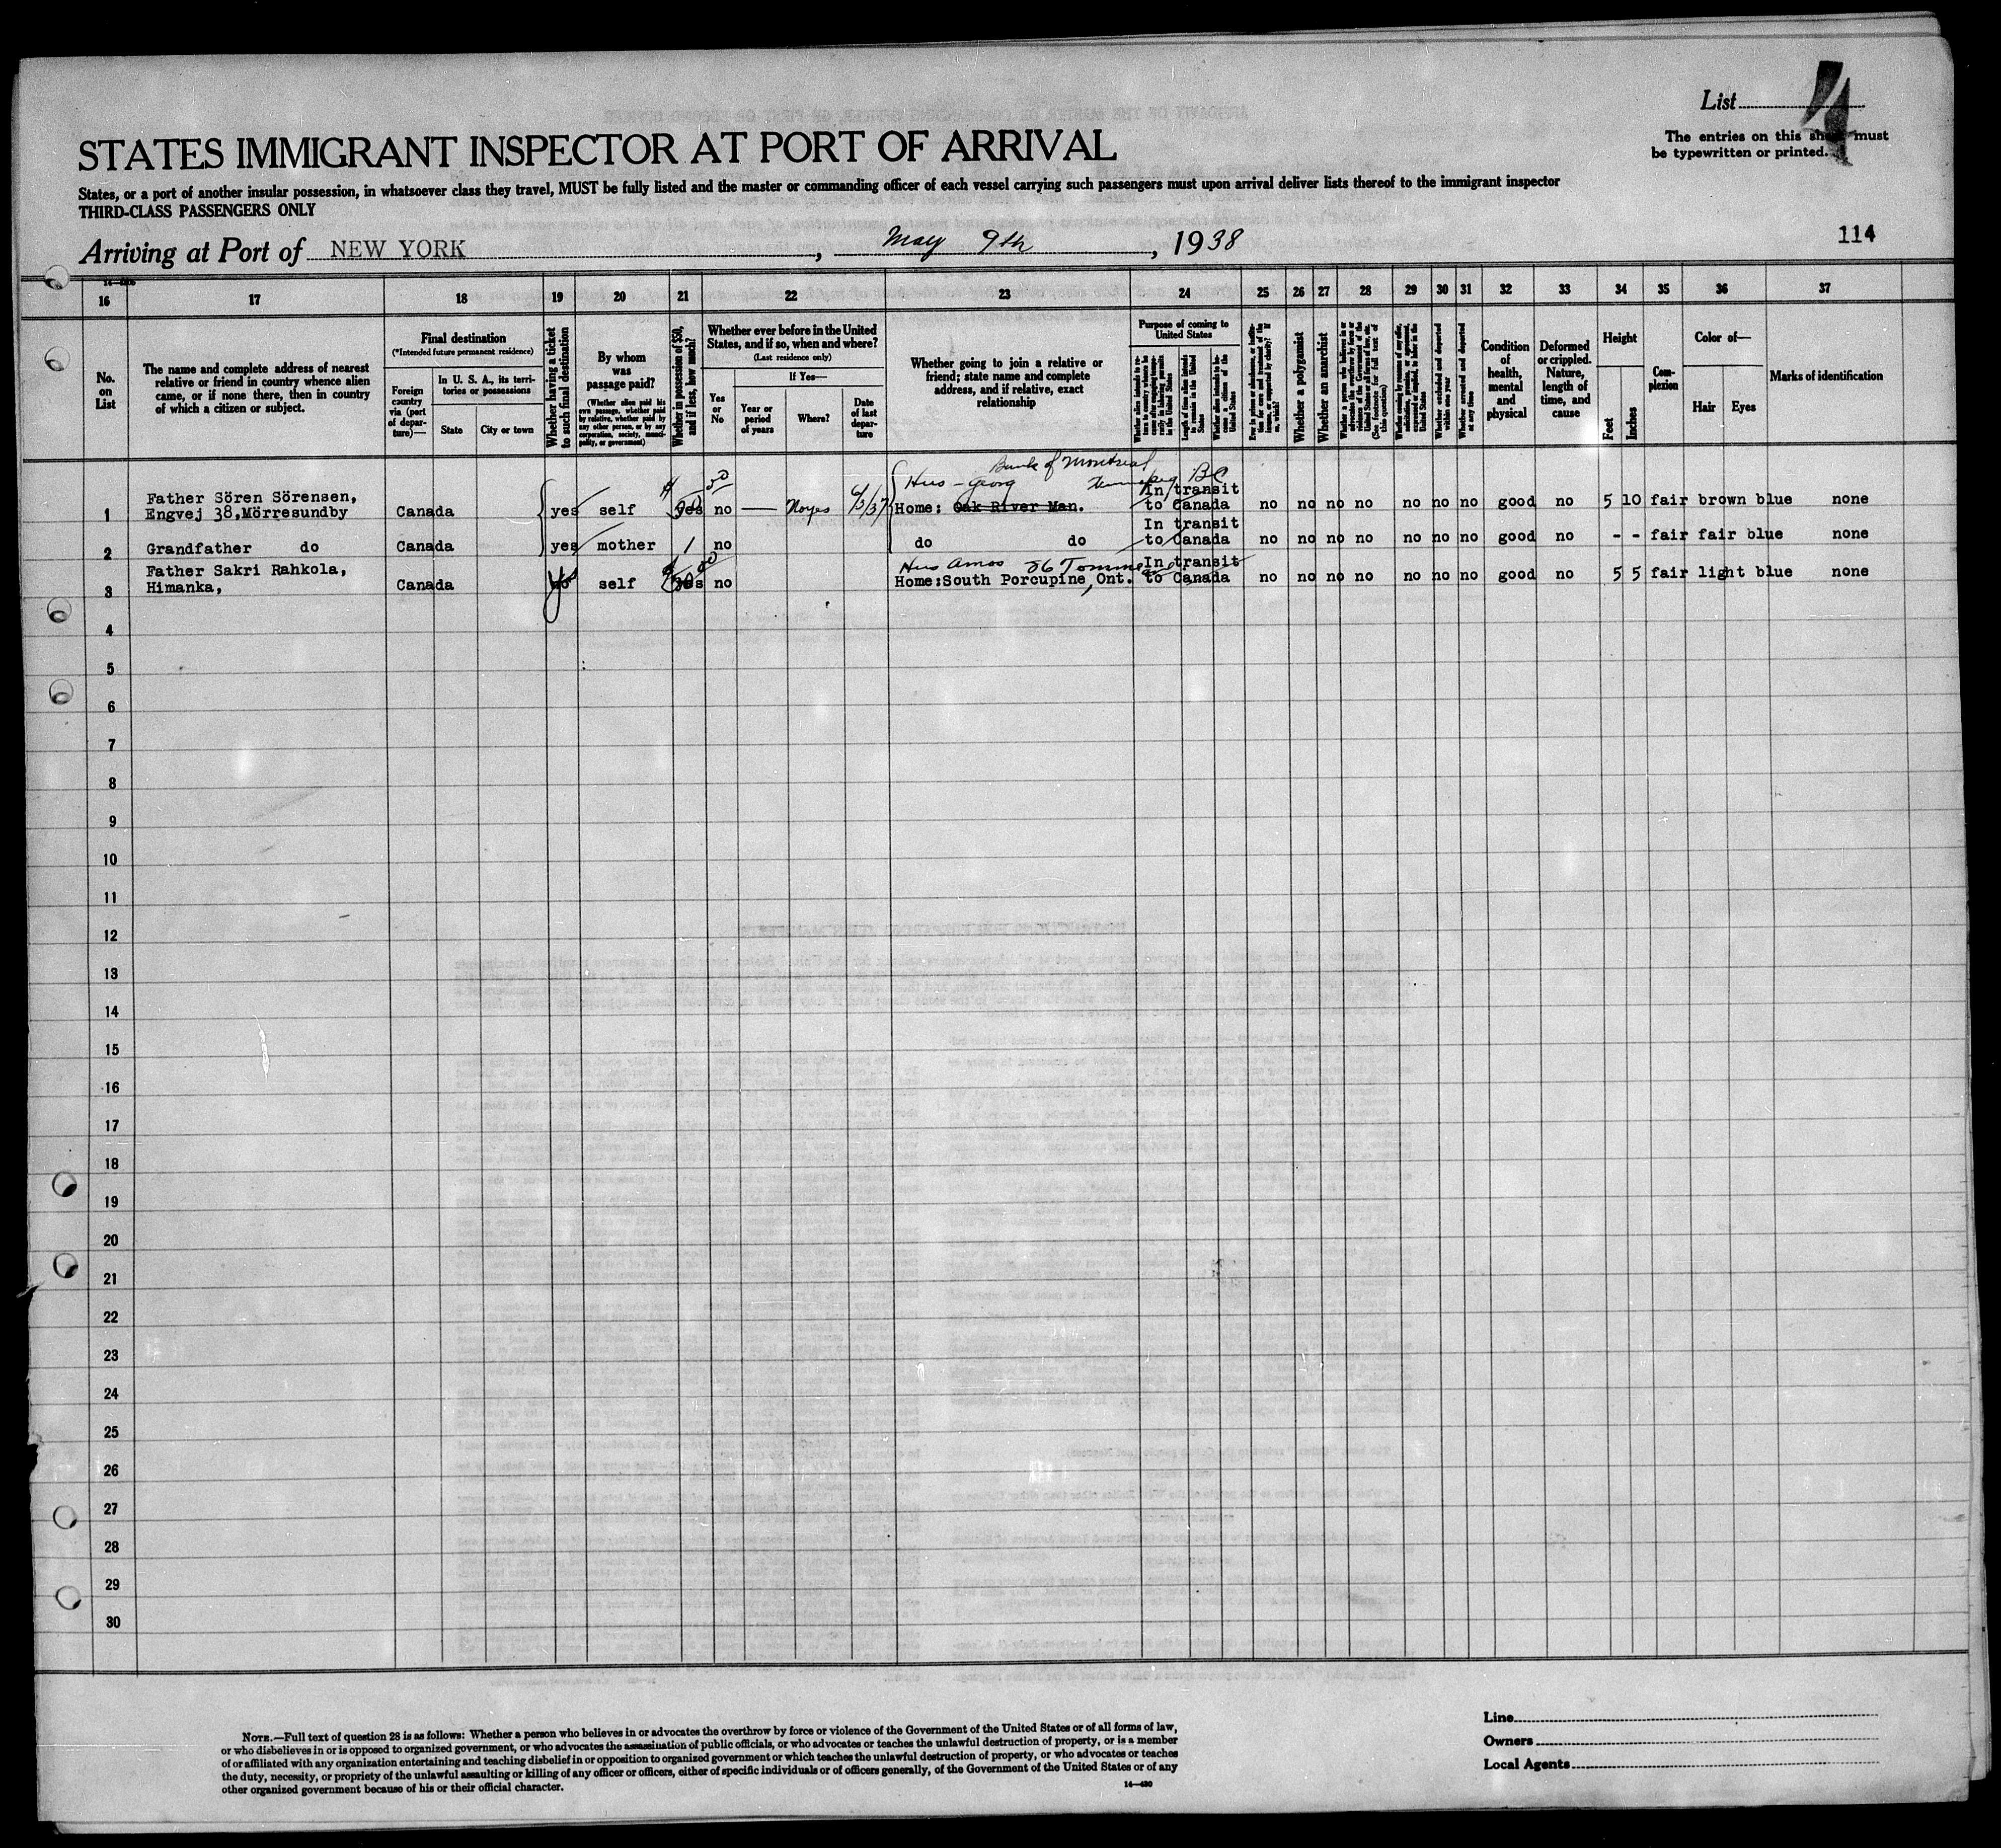 List 4
The entries on this sheet must
be typewritten or printed.
STATES IMMIGRANT INSPECTOR AT PORT OF ARRIVAL
States, or a port of another insular possession, in whatsoever class they travel, MUST be fully listed and the master or commanding officer of each vessel carrying such passengers must upon arrival deliver lists thereof to the immigrant inspector
THIRD-CLASS PASSENGERS ONLY
Arriving at Port of NEW YORK, May 9th, 1938
114
16 17 18 19 20 21 22 23 24 25 26 27 28 29 30 31 32 33 34 35 36 37
No.
on
List
The name and complete address of nearest
relative or friend in country whence alien
came, or if none there, then in country
of which a citizen or subject.
Final destination
(*Intended future permanent residence)
Foreign
country
via (port
of depar-
ture)—
In U. S. A., its terri-
tories or possessions
State
City or town
Whether having a ticket
to such final destination
By whom
was
passage paid?
(Whether alien paid his
own passage, whether paid
by relative, whether paid by
any other person, or by any
corporation, society, munici-
pality, or government)
Whether in possession of $50,
and if less, how much?
Whether ever before in the United
States, and if so, when and where?
(Last residence only)
Yes
or
No
If Yes—
Year or
period
of years
Where?
Date
of last
depar-
ture
Whether going to join a relative or
friend; state name and complete
address, and if relative, exact
relationship
Purpose of coming to
United States
Whether a polygamist
Whether an anarchist
Condition
of
health,
mental
and
physical
Deformed
or crippled.
Nature,
length of
time, and
cause
Height
Feet
Inches
Com-
plexion
Color of—
Hair
Eyes
Marks of identification
Bank of Montreal
Hus - Georg BC
1 Father Sören Sörensen,
Engvej 38, Mörresundby Canada yes self yes 50 no — Noyes 6/3/37 Home: Oak River Man. In transit to Canada no no no no no no no good no 5 10 fair brown blue none
2 Grandfather do Canada yes mother 1 no do do In transit to Canada no no no no no no no good no - - fair fair blue none
Hus Amos 56
3 Father Sakri Rahkola,
Himanka, Canada yes self yes no Home: South Porcupine, Ont. In transit to Canada no no no no no no no good no 5 5 fair light blue none
4
5
6
7
8
9
10
11
12
13
14
15
16
17
18
19
20
21
22
23
24
25
26
27
28
29
30
NOTE.—Full text of question 28 is as follows: Whether a person who believes in or advocates the overthrow by force or violence of the Government of the United States or of all forms of law,
or who disbelieves in or is opposed to organized government, or who advocates the assassination of public officials, or who advocates or teaches the unlawful destruction of property, or is a member
of or affiliated with any organization entertaining and teaching disbelief in or opposition to organized government or which teaches the unlawful destruction of property, or who advocates or teaches
the duty, necessity, or propriety of the unlawful assaulting or killing of any officer or officers, either of specific individuals or of officers generally, of the Government of the United States or of any
other organized government because of his or their official character.
14—430
Line
Owners
Local Agents